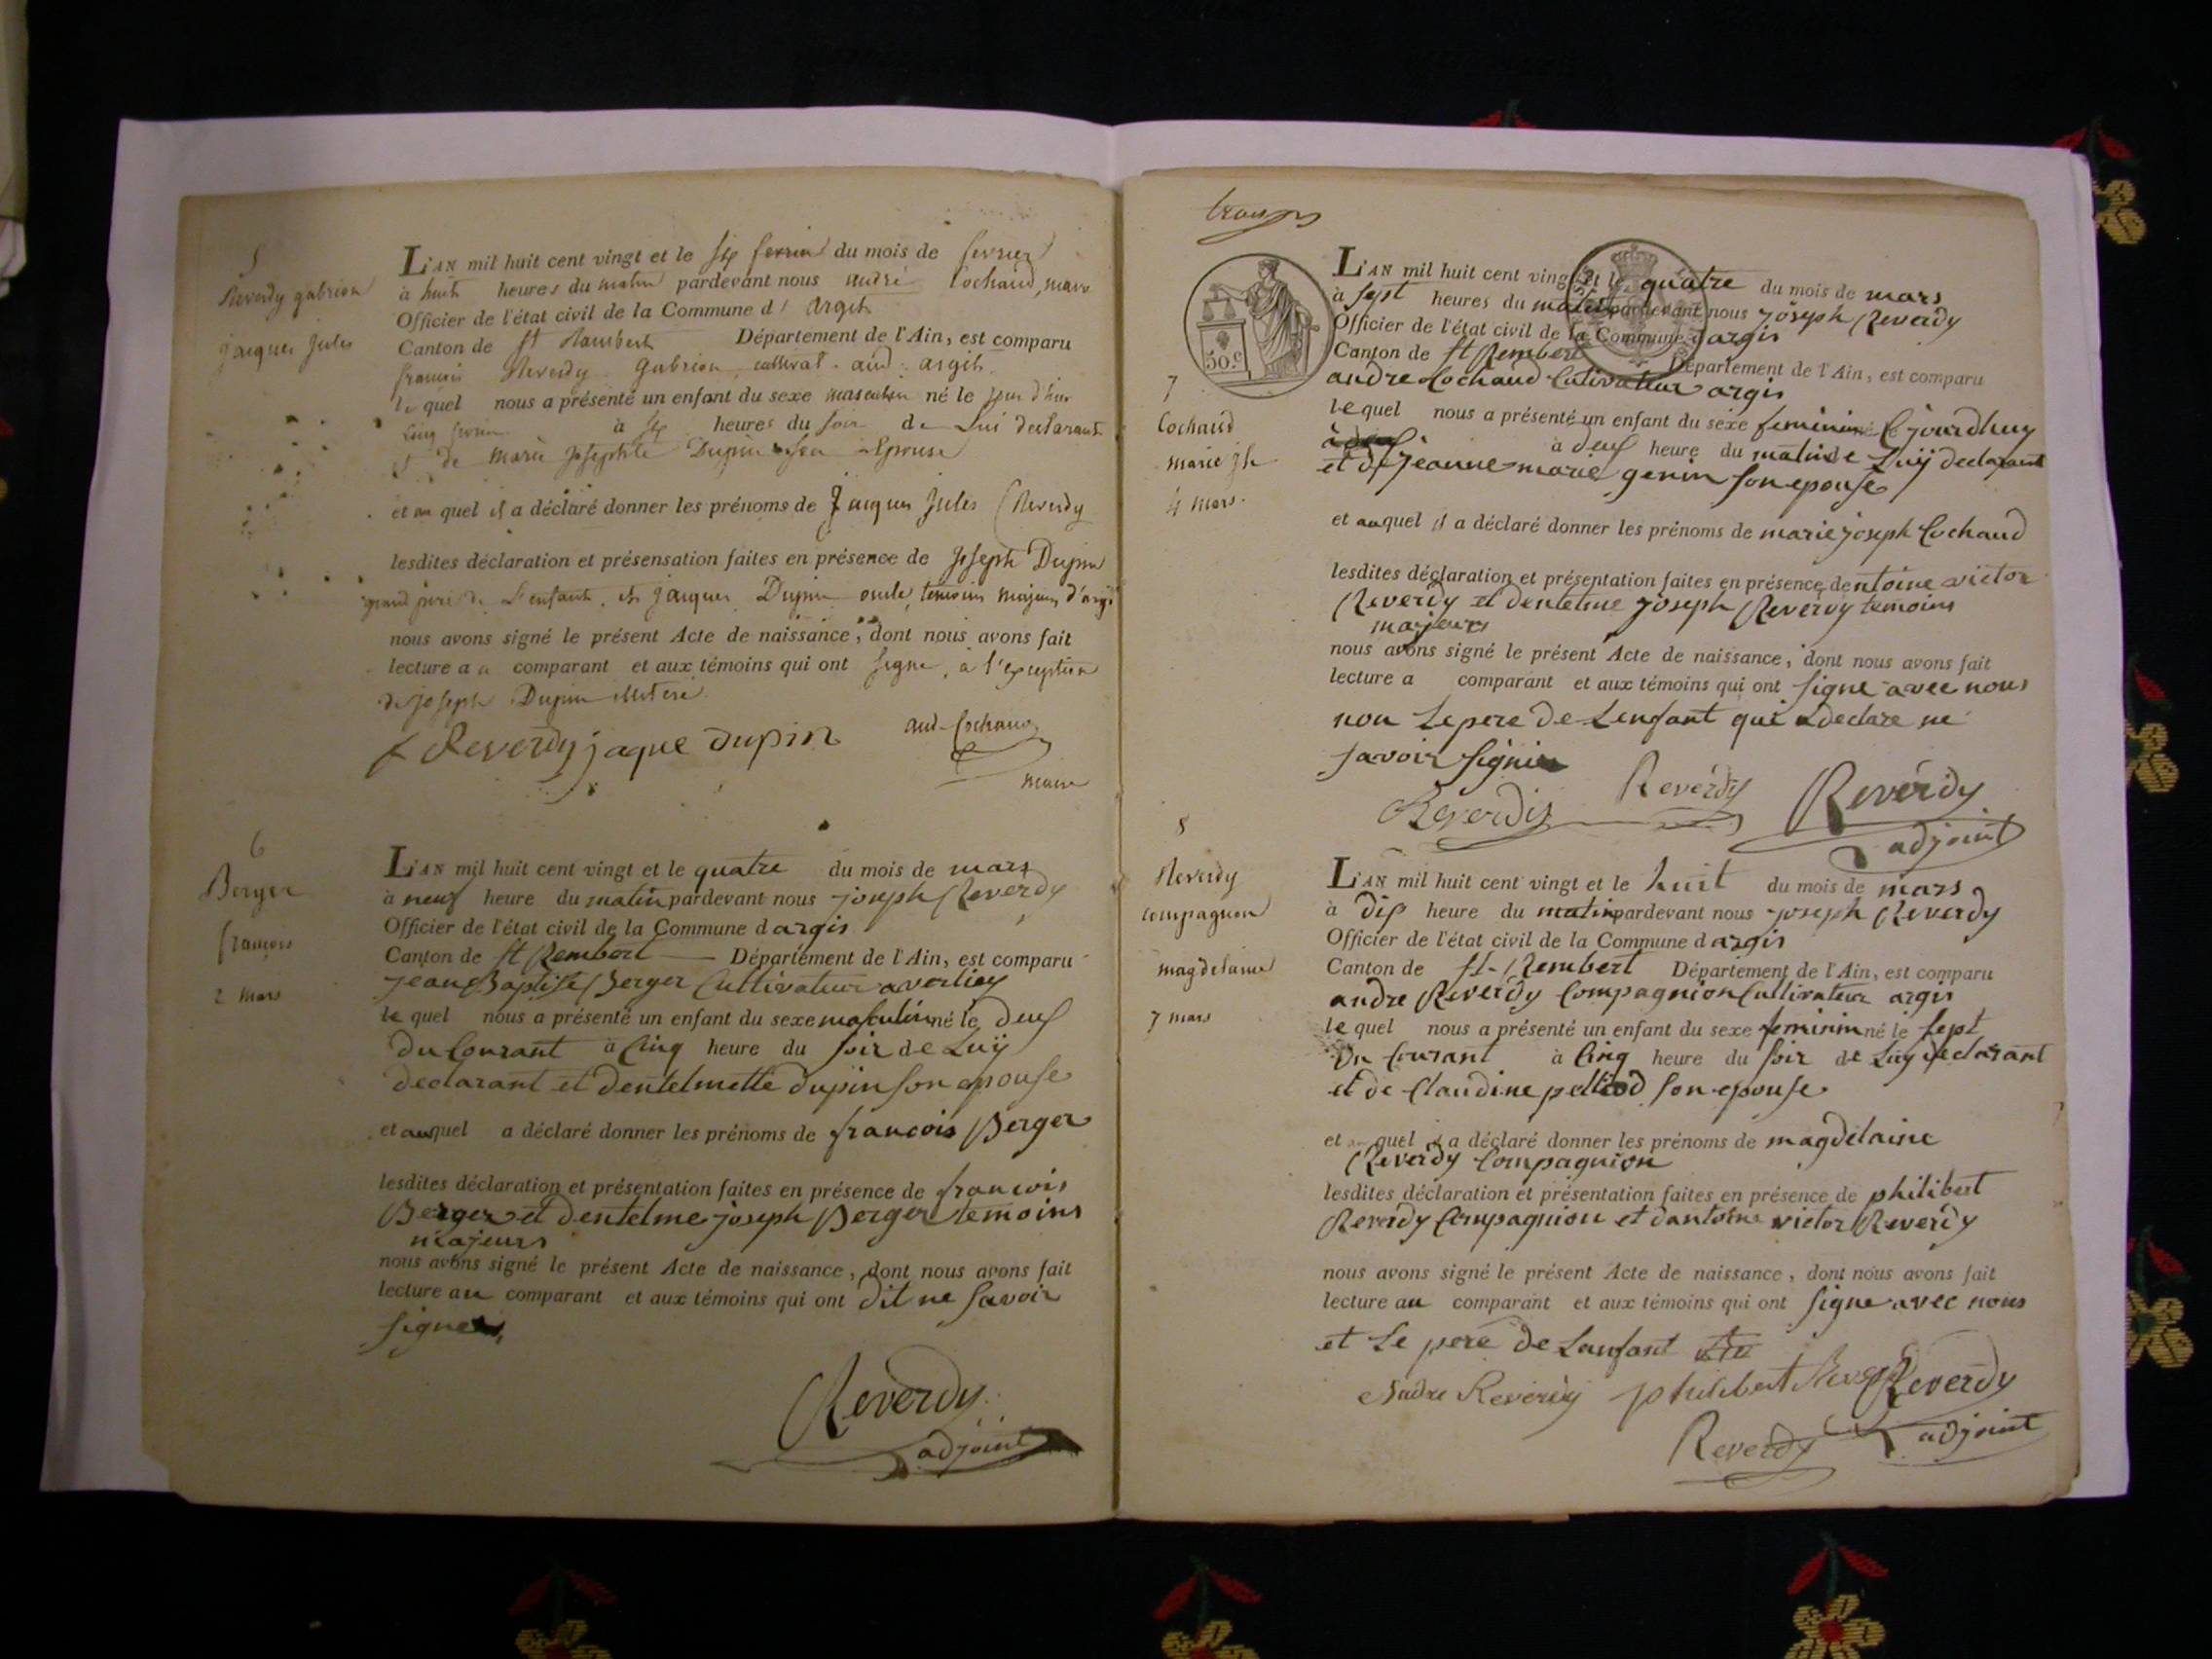 5
Reverdy gabrion
jacques Jules
L'AN mil huit cent vingt et le six fevrier du mois de fevrier
à huit heures du matin pardevant nous andré Cochaud, maire
Officier de l'état civil de la Commune d' argis
Canton de St Rambert Département de l'Ain, est comparu
francois Reverdy gabrion, cultivat. aud. argis
le quel nous a présenté un enfant du sexe masculin né le jour d'hier
cinq fevrier à six heures du soir de Lui declarant
et de marie Josephte Dupin son Epouse
et au quel il a déclaré donner les prénoms de Jacques Jules Reverdy
lesdites déclaration et présensation faites en présence de Joseph Dupin
grand pere de L'enfant, et jacques Dupin oncle, temoins majeurs d'argis
nous avons signé le présent Acte de naissance, dont nous avons fait
lecture au comparant et aux témoins qui ont signe, à l'exception
de joseph Dupin illiteré.
f Reverdy jaque dupin and. Cochaud
maire
6
Berger
françois
2 mars
L'AN mil huit cent vingt et le quatre du mois de mars
à neuf heure du matin pardevant nous joseph Reverdy
Officier de l'état civil de la Commune d argis
Canton de St Rembert Département de l'Ain, est comparu
jean Baptiste Berger Cultivateur a
le quel nous a présenté un enfant du sexe masculin né le deux
du Courant à Cinq heure du soir de Luÿ
declarant et dentelmette dupin son epouse
et auquel a déclaré donner les prénoms de francois Berger
lesdites déclaration et présentation faites en présence de francois
Berger et dentelme joseph Berger temoins
majeurs
nous avons signé le présent Acte de naissance, dont nous avons fait
lecture au comparant et aux témoins qui ont dit ne savoir
signer,
Reverdy
adjoint
trois
50.c
7
Cochaud
marie jh
4 mars.
L'AN mil huit cent vingt et le quatre du mois de mars
à sept heures du matin pardevant nous joseph Reverdy
Officier de l'état civil de la Commune d argis
Canton de St Rembert Département de l'Ain, est comparu
andre Cochaud Cutivateur argis
le quel nous a présenté un enfant du sexe feminin né le jourdhuy
à deux
à deux heure du matin de Luÿ declarant
et de jeanne marie genin son epouse
et auquel il a déclaré donner les prénoms de marie joseph Cochaud
lesdites déclaration et présentation faites en présence dentoine victor
Reverdy et dentelme joseph Reverdy temoins
majeurs
nous avons signé le présent Acte de naissance, dont nous avons fait
lecture a comparant et aux témoins qui ont signe avec nous
non Le pere de Lenfant qui a declare ne
savoir signer
Reverdis Reverdy Reverdy
adjoint
8
Reverdy
compagnon
magdelaine
7 mars
L'AN mil huit cent vingt et le huit du mois de mars
à dix heure du matin pardevant nous joseph Reverdy
Officier de l'état civil de la Commune d argis
Canton de St. Rembert Département de l'Ain, est comparu
andre Reverdy Compagnion Cultivateur argis
le quel nous a présenté un enfant du sexe feminin né le sept
du Courant à Cinq heure du soir de Luy declarant
et de Claudine son epouse
et au quel il a déclaré donner les prénoms de magdelaine
Reverdy Compagnion
lesdites déclaration et présentation faites en présence de philibert
Reverdy Compagnion et dantoine victor Reverdy
nous avons signé le présent Acte de naissance, dont nous avons fait
lecture au comparant et aux témoins qui ont signe avec nous
et Le pere de Lanfant
Andre Reverdy philibert Reverdy Reverdy
Reverdy adjoint